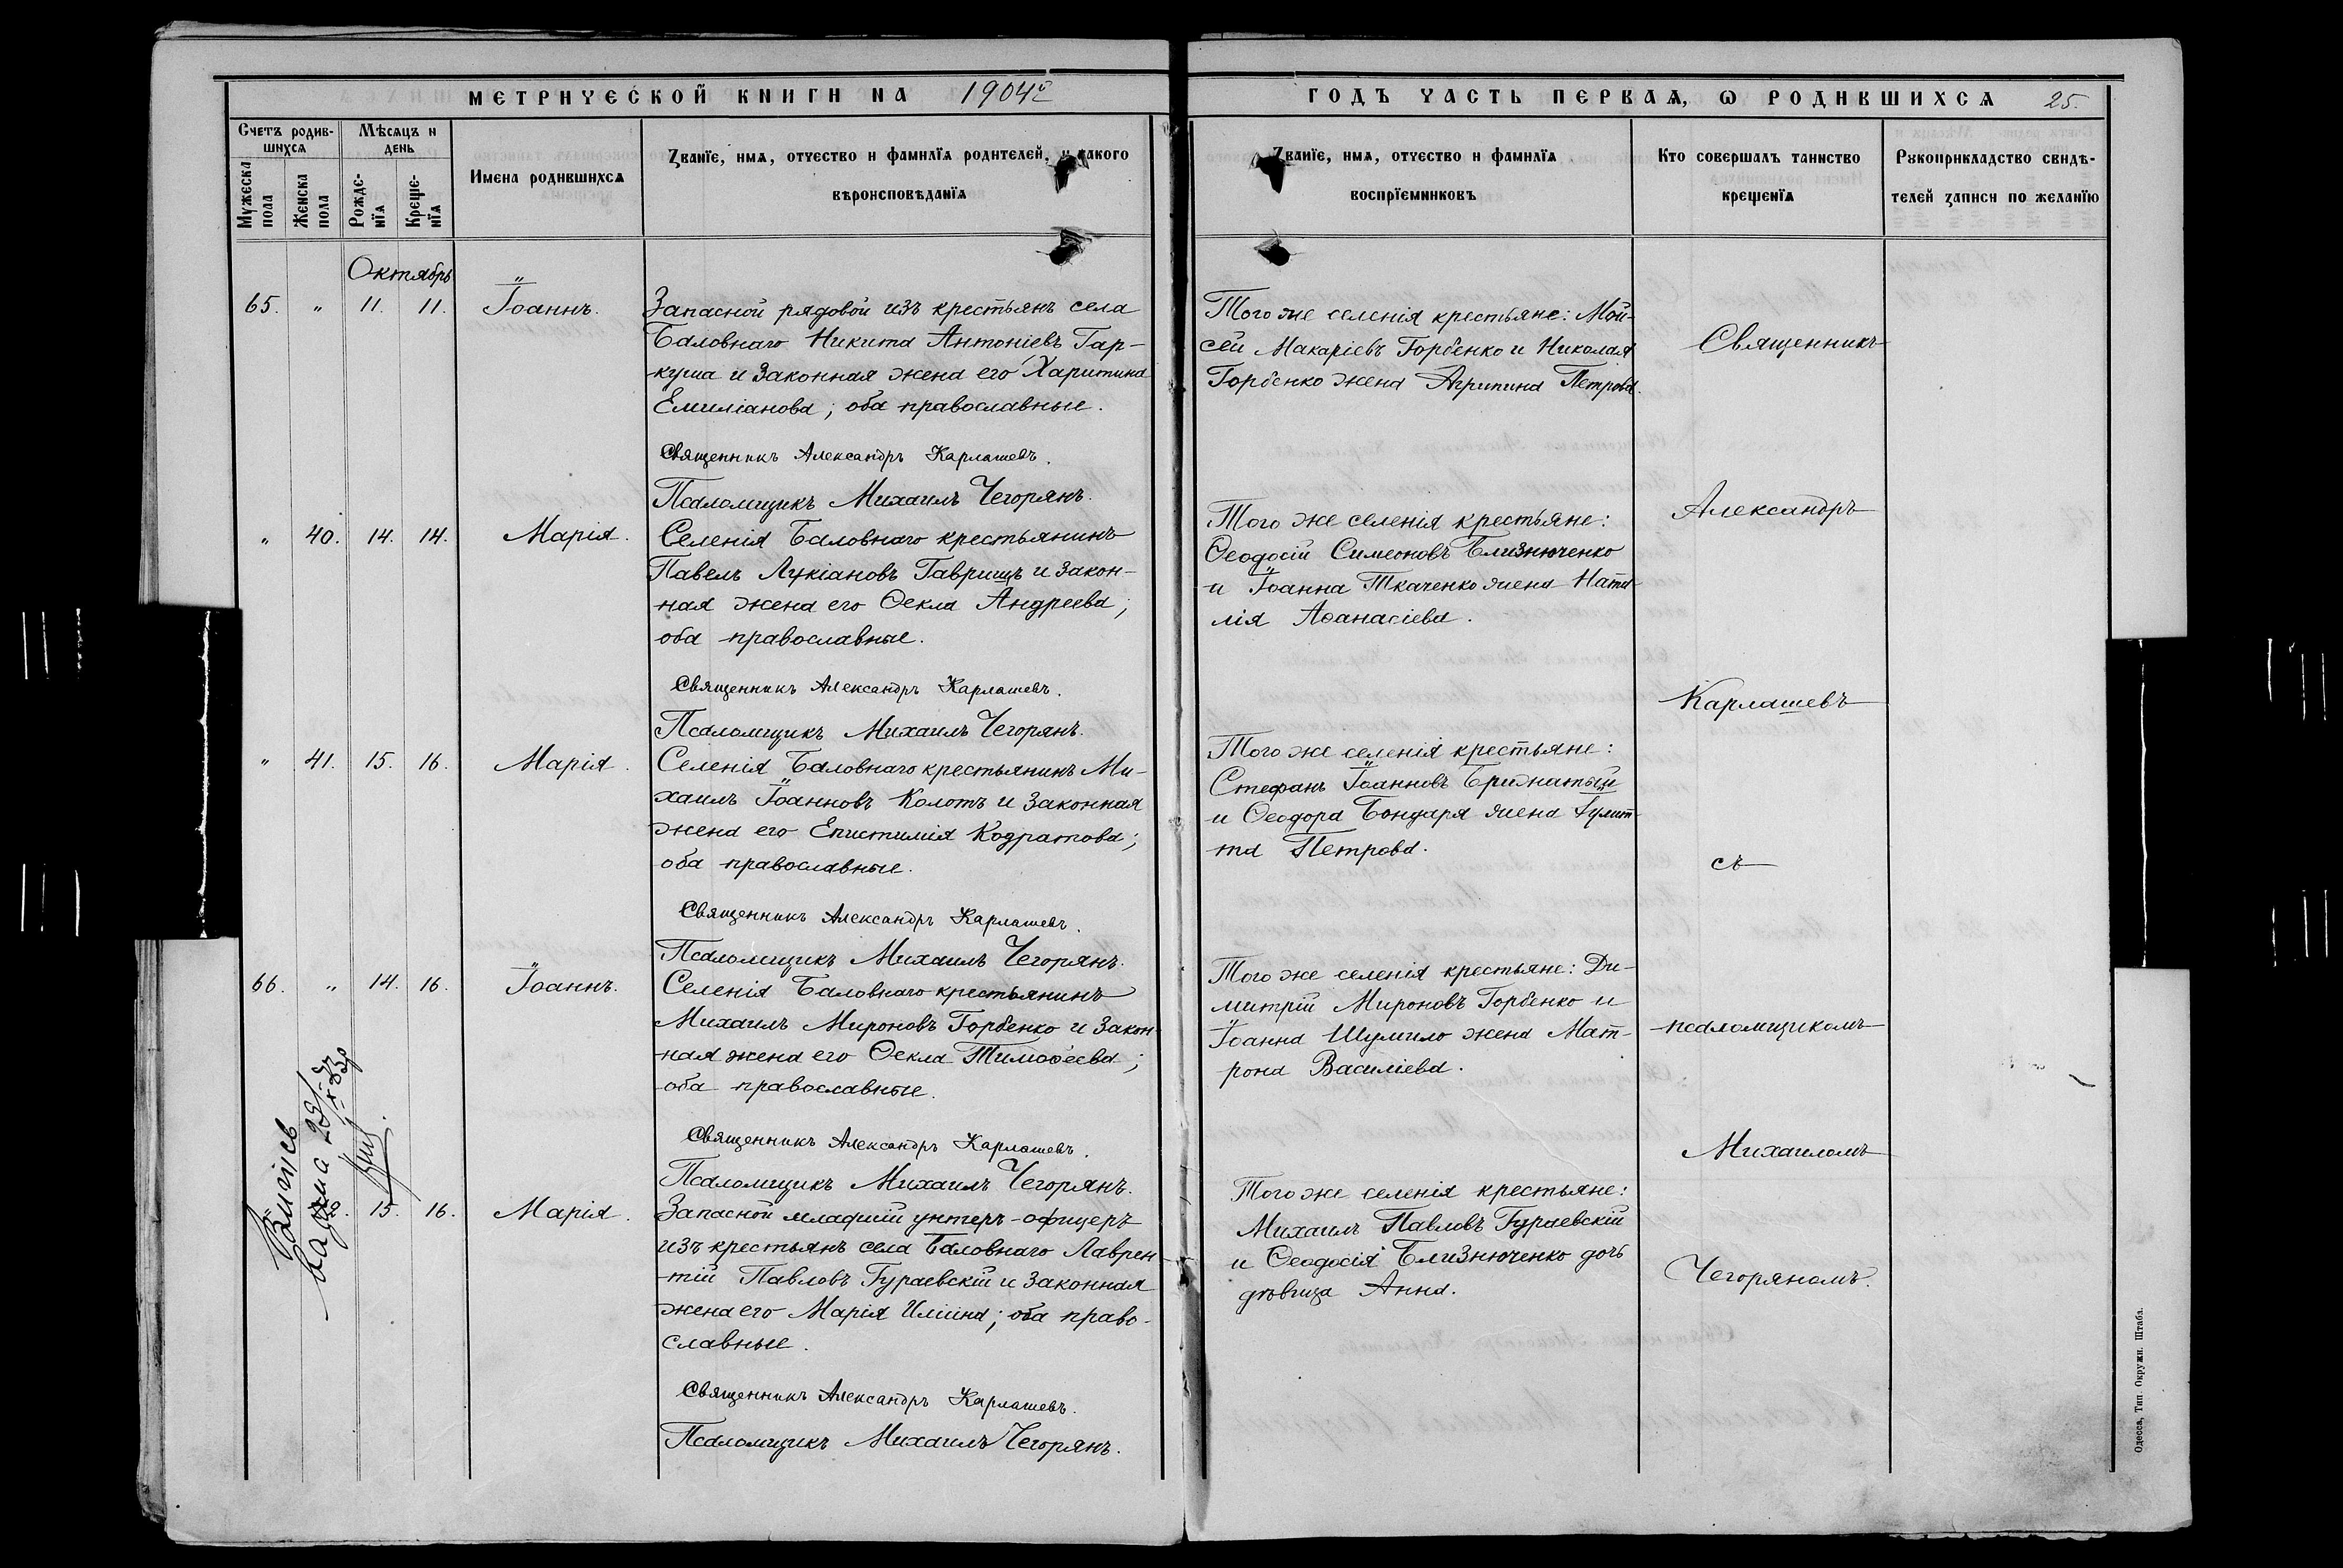 МЕТРИЧЕСКОЙ КНИГИ НА 1904й
ГОДЪ ЧАСТЬ ПЕРВАЯ, Ѡ РОДИВШИХСЯ 25.
Счетъ родив-
шихся
Мужеска
пола
Женска
пола
Мѣсяцъ и
день
Рожде-
нїя
Креще-
нїя
Имена родившихся
Званїе, имя, отчество и фамилїя родителей, и какого
вѣроисповѣданїя
Званїе, имя, отчество и фамилїя
воспрїемниковъ
Кто совершалъ таинство
крещенїя
Рукоприкладство свидѣ-
телей записи по желанїю
Октябрь
65. " 11. 11. Іоаннъ.
Запасной рядовой изъ крестьянъ села
Баловнаго Никита Антоніевъ Гар-
куша и законная жена его Харитина
Емиліанова; оба православные.
Священникъ Александръ Карлашевъ.
Псаломщикъ Михаилъ Чегорянъ.
Того же селенія крестьяне: Мои-
сей Макаріевъ Горбенко и Николая
Горбенко жена Агрипина Петрова.
" 40. 14. 14. Марія.
Селенія Баловнаго крестьянинъ
Павелъ Лукіановъ Гаврищъ и закон-
ная жена его Ѳекла Андреева;
оба православные.
Священникъ Александръ Карлашевъ.
Псаломщикъ Михаилъ Чегорянъ.
Того же селенія крестьяне:
Ѳеодосій Симеоновъ Близнюченко
и Іоанна Ткаченко жена Ната-
лія Аѳанасіева.
" 41. 15. 16. Марія.
Селенія Баловнаго крестьянинъ Ми-
хаилъ Іоанновъ Колотъ и законная
жена его Епистимія Кодратова;
оба православные.
Священникъ Александръ Карлашевъ.
Псаломщикъ Михаилъ Чегорянъ.
Того же селенія крестьяне:
Стефанъ Іоанновъ Брижатый
и Ѳеодора Бондаря жена
та Петрова.
66. " 14. 16. Іоаннъ.
Селенія Баловнаго крестьянинъ
Михаилъ Мироновъ Горбенко и закон-
ная жена его Ѳекла Тимоѳеева;
оба православные.
Священникъ Александръ Карлашевъ.
Псаломщикъ Михаилъ Чегорянъ.
Того же селенія крестьяне: Ди-
митрій Мироновъ Горбенко и
Іоанна Шумило жена Мат-
рона Василіева.
15. 16. Марія.
Запасной младшій унтеръ-офицеръ
изъ крестьянъ села Баловнаго Лаврен-
тій Павловъ Гураевскій и законная
жена его Марія Иліина; оба право-
славные.
Священникъ Александръ Карлашевъ.
Псаломщикъ Михаилъ Чегорянъ.
Того же селенія крестьяне:
Михаилъ Павловъ Гураевскій
и Ѳеодосія Близнюченко дочь
дѣвица Анна.
Священникъ
Александръ
Карлашевъ
съ
псаломщикомъ
Михаиломъ
Чегоряномъ.
Одесса, Тип. Окружн. Штаба.